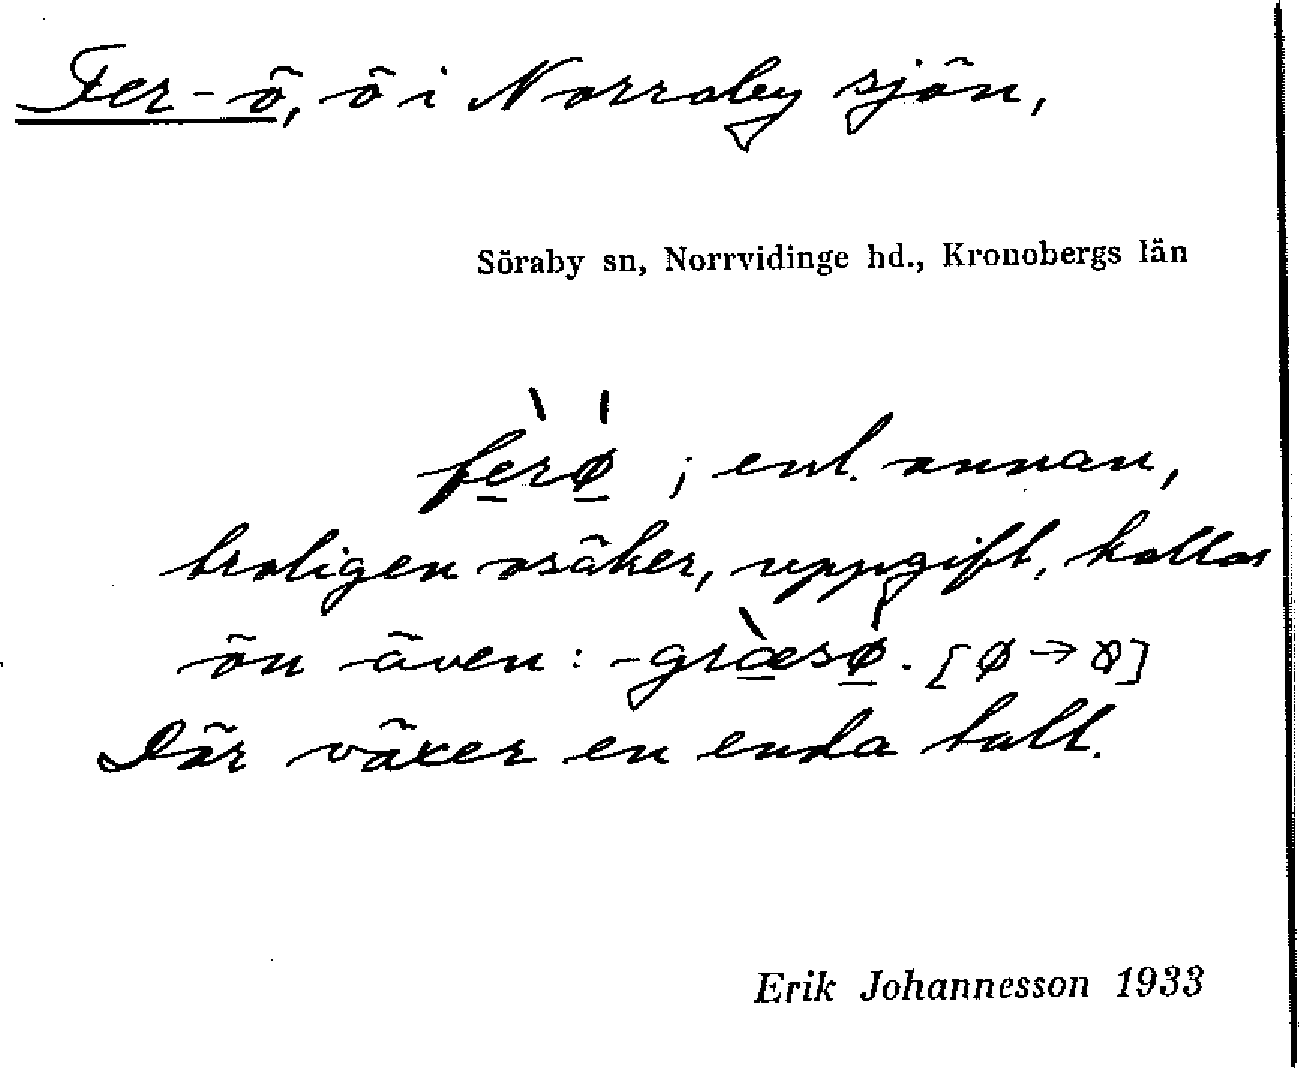 Fer-ö, ö i Norraby sjön,
Söraby sn, Norrvidinge hd., Kronobergs län
fèrǿ ; enl. annan,
troligen osäker, uppgift, kallas
ön även: -græ̀sǿ. [ø → ꝏ]
Där växer en enda tall.
Erik Johannesson 1933